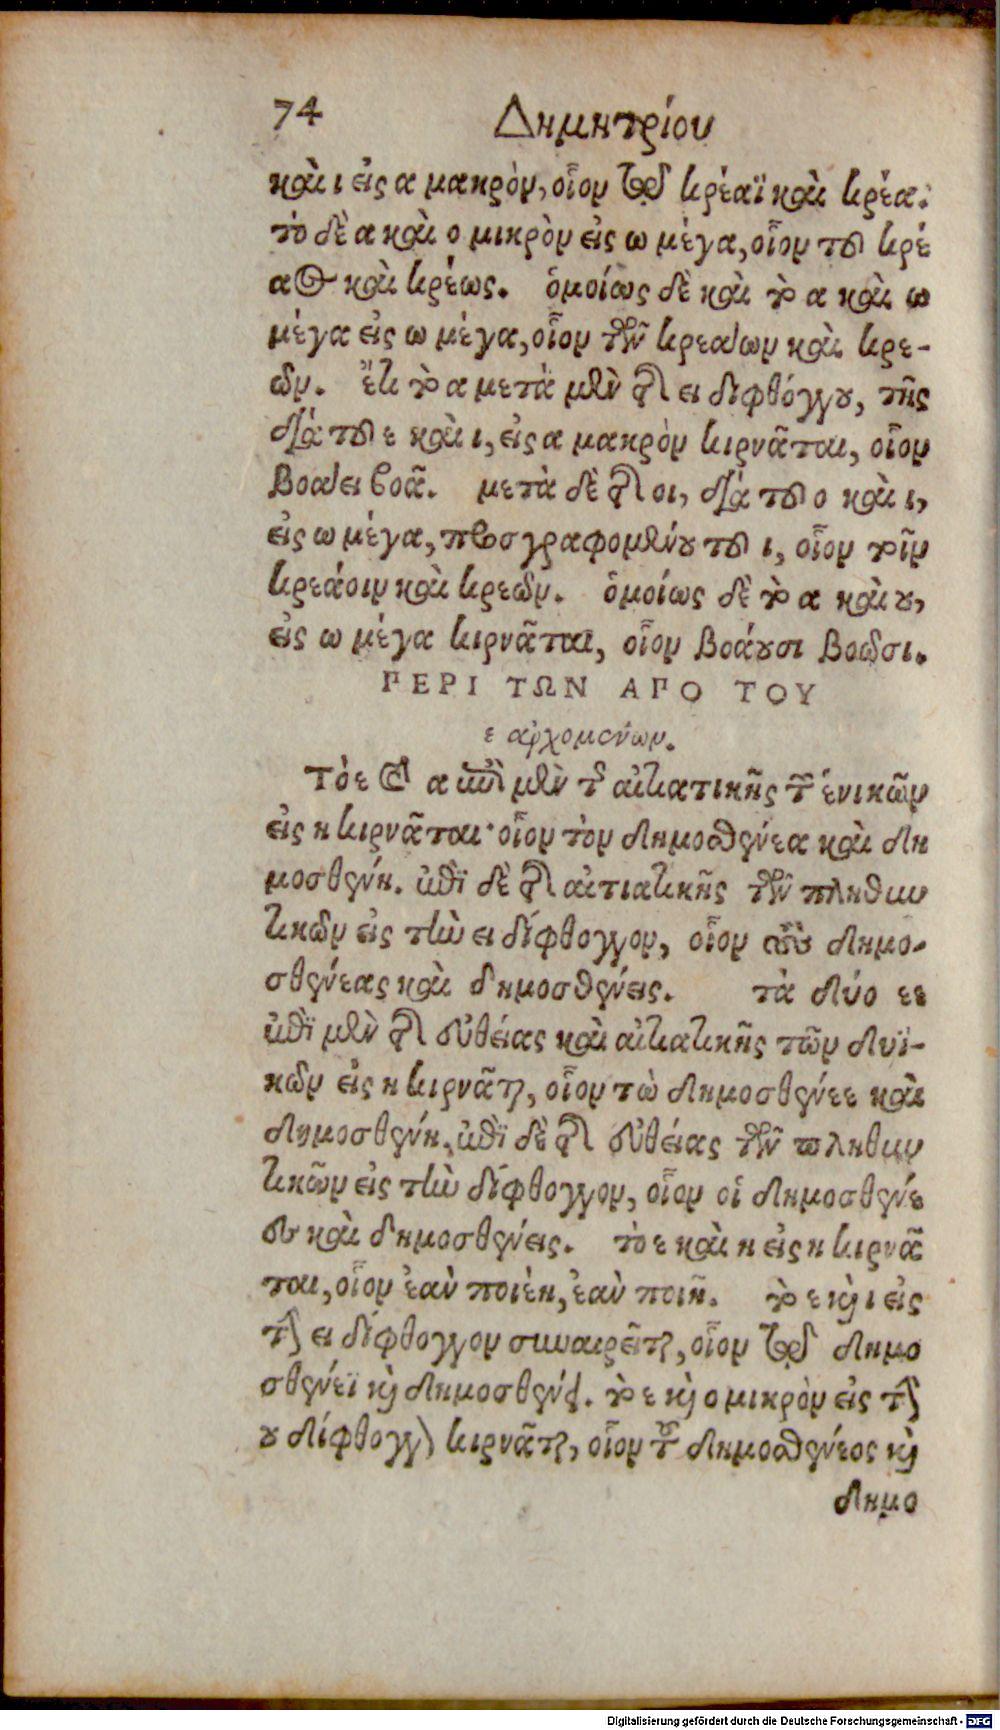 74 Δημητρίου
καὶ ι εἰς α μακρὸν, οἷον τῷ κρέαϊ καὶ κρέα.
τὸ δὲ α καὶ ο μικρὸν εἰς ω μέγα, οἷον τοῦ κρέ
αος καὶ κρέως. ὁμοίως δὲ καὶ τὸ α καὶ ω
μέγα εἰς ω μέγα, οἷον τῶν κρεάων καὶ κρε-
ῶν. ἔτι τὸ α μετὰ μὲν τῆς ει διφθόγγου, τῆς
διὰ τοῦ ε καὶ ι, εἰς α μακρὸν κιρνᾶται, οἷον
βοάει βοᾶ. μετὰ δὲ τῆς οι, διὰ τοῦ ο καὶ ι,
εἰς ω μέγα, προσγραφομένου τοῦ ι, οἷον τοῖν
κρεάοιν καὶ κρεῶν. ὁμοίως δὲ τὸ α καὶ ου,
εἰς ω μέγα κιρνᾶται, οἷον βοάουσι βοῶσι.
ΠΕΡΙ ΤΩΝ ΑΠΟ ΤΟΥ
ε ἀρχομένων.
Τὸ ε καὶ α ἐπὶ μὲν τῆς αἰτιατικῆς τῶν ἑνικῶν
εἰς η κιρνᾶται· οἷον τὸν δημοσθένεα καὶ δη
μοσθένη. ἐπὶ δὲ τῆς αἰτιατικῆς τῶν πληθυν
τικῶν εἰς τὴν ει δίφθογγον, οἷον τοὺς δημο-
σθένεας καὶ δημοσθένεις. τὰ δύο εε
ἐπὶ μὲν τῆς εὐθείας καὶ αἰτιατικῆς τῶν δυϊ-
κῶν εἰς η κιρνᾶται, οἷον τὼ δημοσθένεε καὶ
δημοσθένη. ἐπὶ δὲ τῆς εὐθείας τῶν πληθυν
τικῶν εἰς τὴν δίφθογγον, οἷον οἱ δημοσθένε
ες καὶ δημοσθένεις. τὸ ε καὶ η εἰς η κιρνᾶ
ται, οἷον ἐὰν ποιέη, ἐὰν ποιῆ. τὸ ε καὶ ι εἰς
τὴν ει δίφθογγον συναιρεῖται, οἷον τῷ δημο
σθένεϊ καὶ δημοσθένει. τὸ ε καὶ ο μικρὸν εἰς τὴν
ου δίφθογγον κιρνᾶται, οἷον τοῦ δημοσθένεος καὶ
δημο
Digitalisierung gefördert durch die Deutsche Forschungsgemeinschaft - DFG